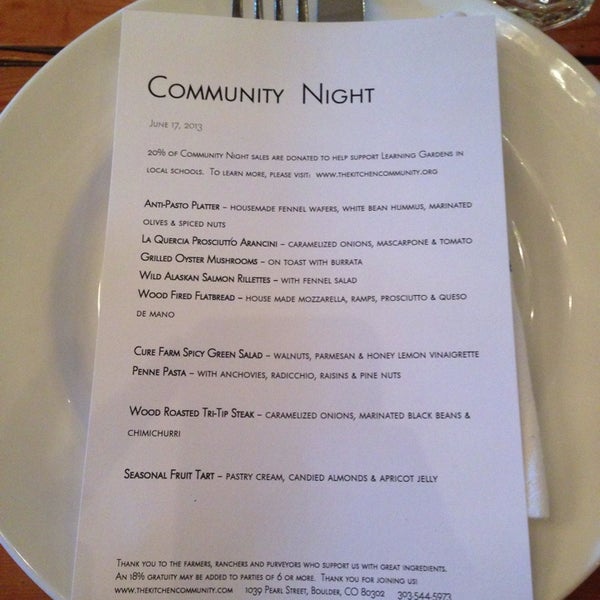 Community Night
June 17, 2013
20% of Community Night sales are donated to help support Learning Gardens in
local schools. To learn more, please visit: www.thekitchencommunity.org
Anti-Pasto Platter – housemade fennel wafers, white bean hummus, marinated
olives & spiced nuts
La Quercia Prosciutto Arancini – caramelized onions, mascarpone & tomato
Grilled Oyster Mushrooms – on toast with burrata
Wild Alaskan Salmon Rillettes – with fennel salad
Wood Fired Flatbread – house made mozzarella, ramps, prosciutto & queso
de mano
Cure Farm Spicy Green Salad – walnuts, parmesan & honey lemon vinaigrette
Penne Pasta – with anchovies, radicchio, raisins & pine nuts
Wood Roasted Tri-Tip Steak – caramelized onions, marinated black beans &
chimichurri
Seasonal Fruit Tart – pastry cream, candied almonds & apricot jelly
Thank you to the farmers, ranchers and purveyors who support us with great ingredients.
An 18% gratuity may be added to parties of 6 or more. Thank you for joining us!
www.thekitchencommunity.com 1039 Pearl Street, Boulder, CO 80302 303.544.5973